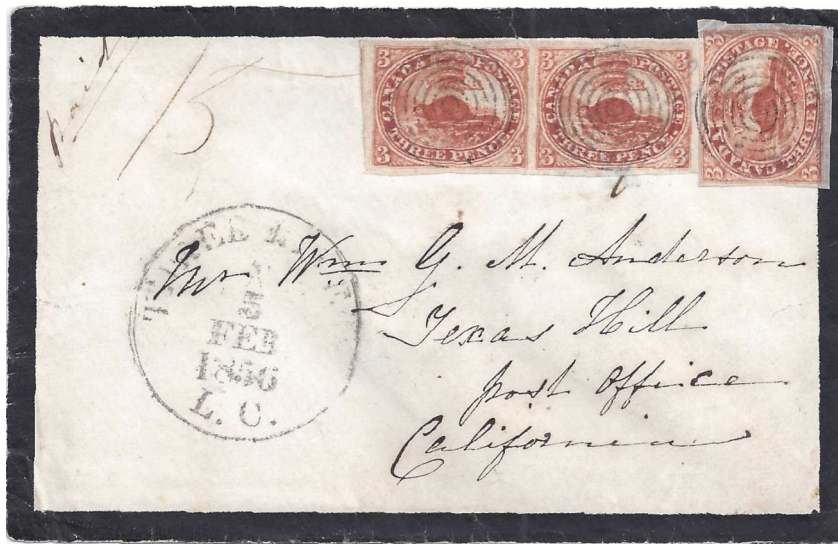 paid 1/3
3 CANADA POSTAGE 3
3 THREE PENCE 3
3 CANADA POSTAGE 3
3 THREE PENCE 3
3 CANADA POSTAGE 3
3 THREE PENCE 3
THREE
5
FEB
1856
L. C.
Mr Wm G. M. Anderson
Texas Hill
post Office
California